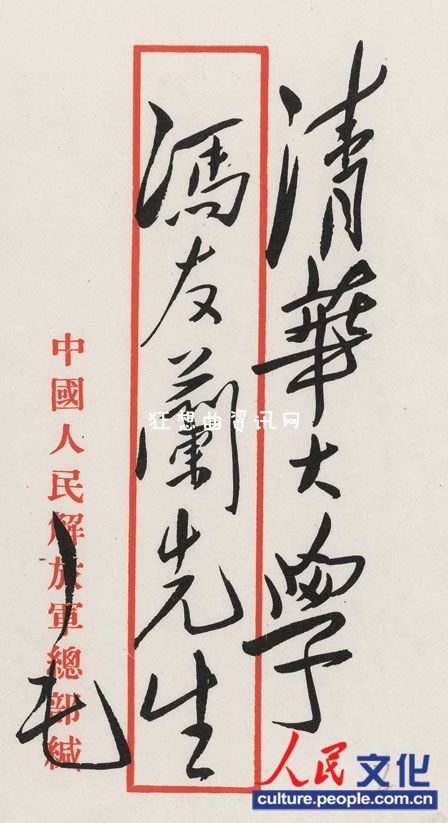 清華大學
馮友蘭先生
中國人民解放軍總部緘
毛
狂想曲资讯网
人民文化
culture.people.com.cn